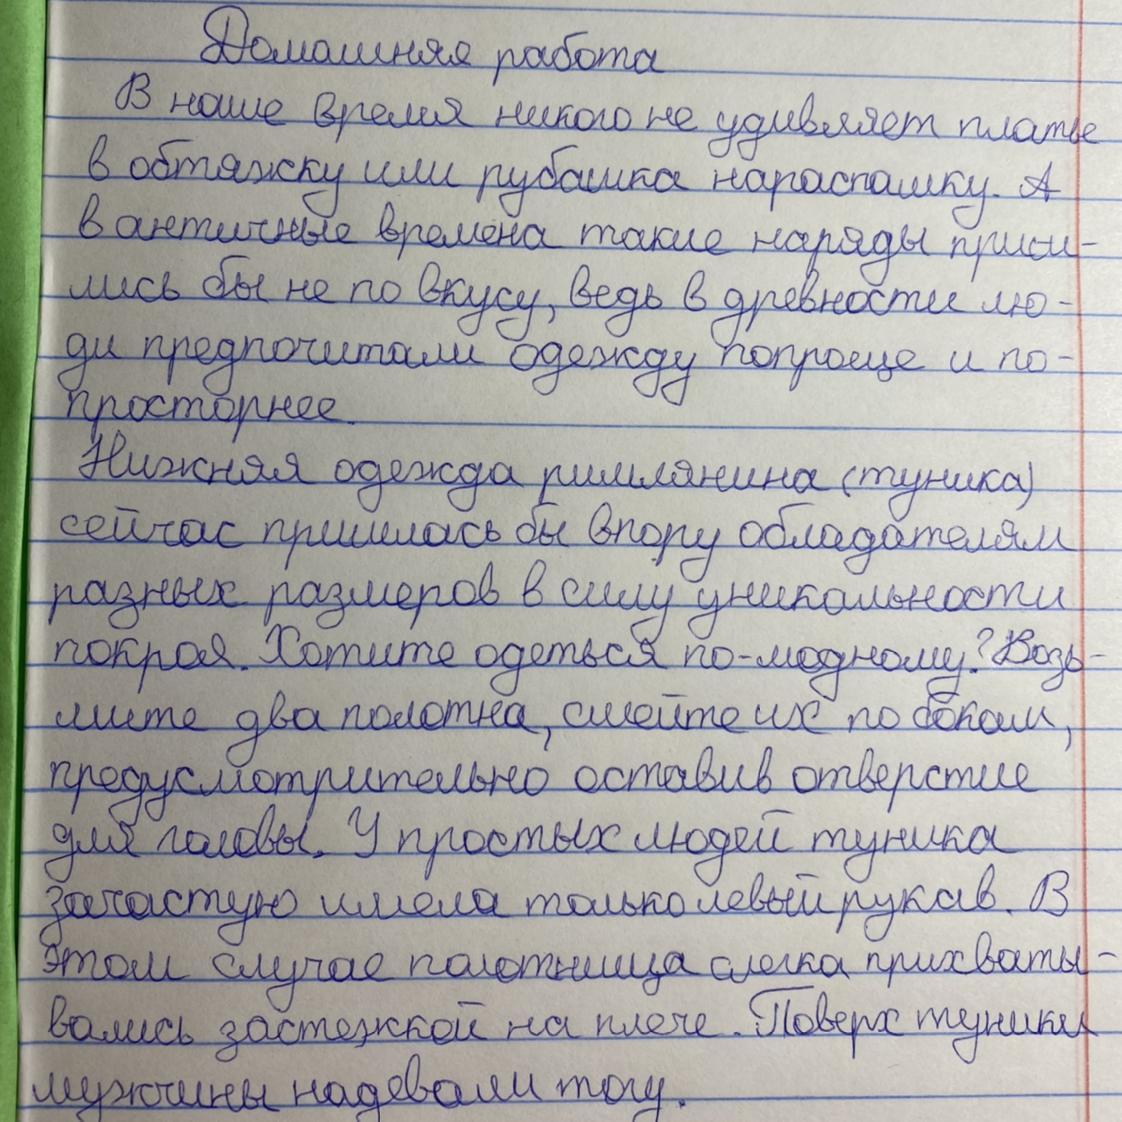 Домашняя работа
В наше время никого не удивляет платье
в обтяжку или рубашка нараспашку. А
в античные времена такие наряды приш-
лись бы не по вкусу, ведь в древности лю-
ди предпочитали одежду попроще и по-
просторнее.
Нижняя одежда римлянина (туника)
сейчас пришлась бы впору обладателям
разных размеров в силу уникальности
покроя. Хотите одеться по-модному? Возь-
мите два полотна, сшейте их по бокам,
предусмотрительно оставив отверстие
для головы. У простых людей туника
зачастую имела только левый рукав. В
этом случае полотнища слегка прихваты-
вались застежкой на плече. Поверх туники
мужчины надевали тогу.